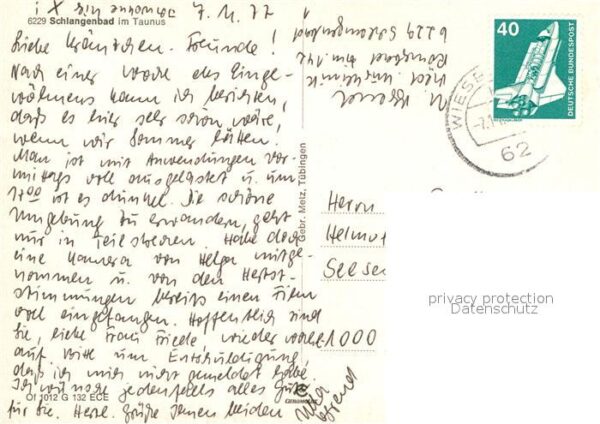 7.11.77
6229 Schlangenbad im Taunus
Liebe Kränzchen-Freunde!
Nach einer Woche des Einge-
wöhnens kann ich berichten,
daß es hier sehr schön wäre,
wenn wir Sommer hätten.
Man ist mit Anwendungen vor-
mittags voll ausgelastet u. um
17.00 ist es dunkel. Die schöne
Umgebung zu erwandern, geht
nur in Teilstrecken. Habe doch
eine Kamera von Helga mitge-
nommen u. von den Herbst-
stimmungen bereits einen Film
voll eingefangen. Hoffentlich sind
Sie, liebe Frau Friede, wieder wohl-
auf. Bitte um Entschuldigung,
daß ich mich nicht gemeldet habe.
Ich wünsche jedenfalls alles Gute
für Sie. Herzl. Grüße Ihnen beiden
6229 Schlangenbad
Gebr. Metz, Tübingen
40
DEUTSCHE BUNDESPOST
WIESB
62
Herrn
Helmut
Seese
1000
privacy protection
Datenschutz
Of 1012 G 132 ECE